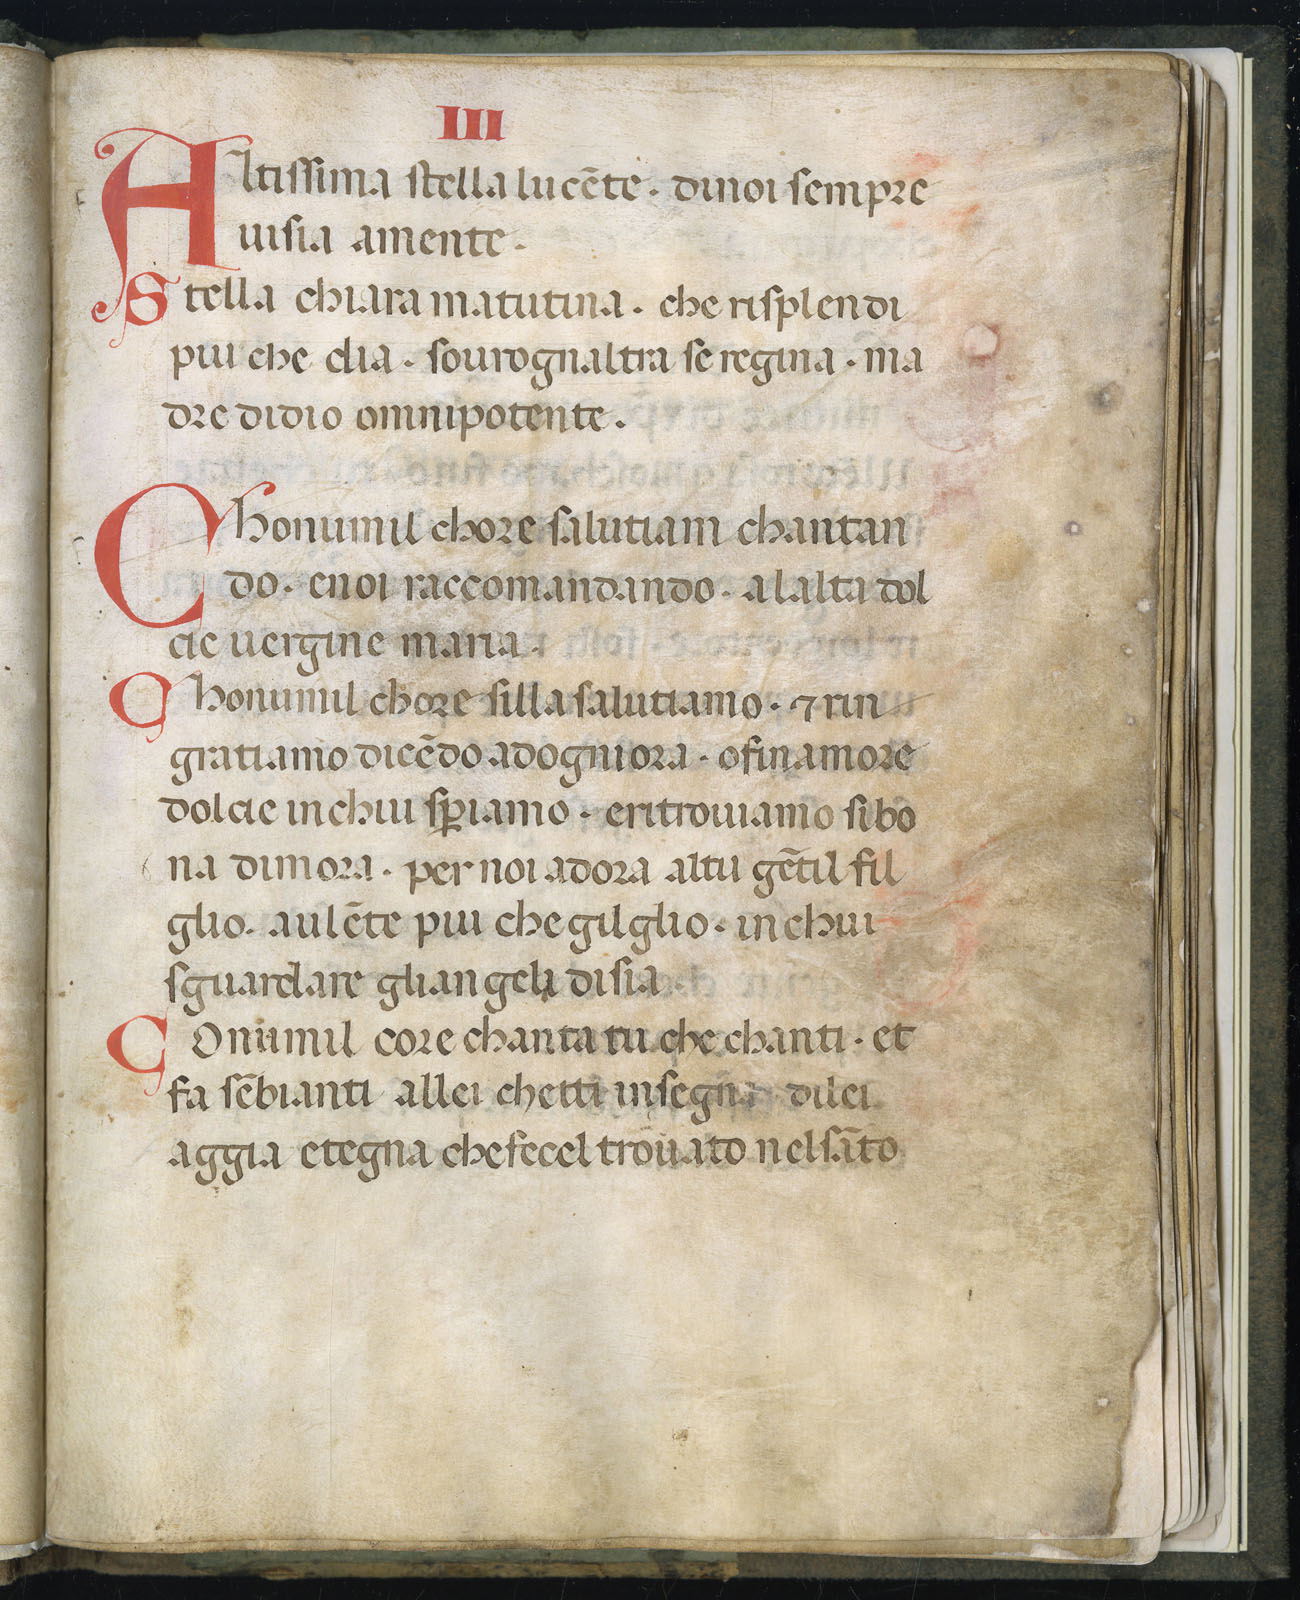 III
Altissima stella lucēte · dinoi sempre
uisia amente ·
Stella chiara matutina · che risplendi
piu che dia · sourognaltra se regina · ma
dre didio omnipotente ·
Chonumil chore salutiam chantan
do · enoi raccomandando · alalta dol
cie uergine maria ·
Chonumil chore silla salutiamo · ⁊ rin
gratiamo dicēdo adogniora · ofinamore
dolcie inchui sꝑiamo · eritrouiamo sibo
na dimora · per noi adora altu gētil fil
glio · aulēte piu che gilglio · in chui
sguardare gliangeli disia ·
Conumil core chanta tu che chanti · et
fa sēbianti allei chetti insegna dilei
aggia etegna chefecel trouato nelsāto